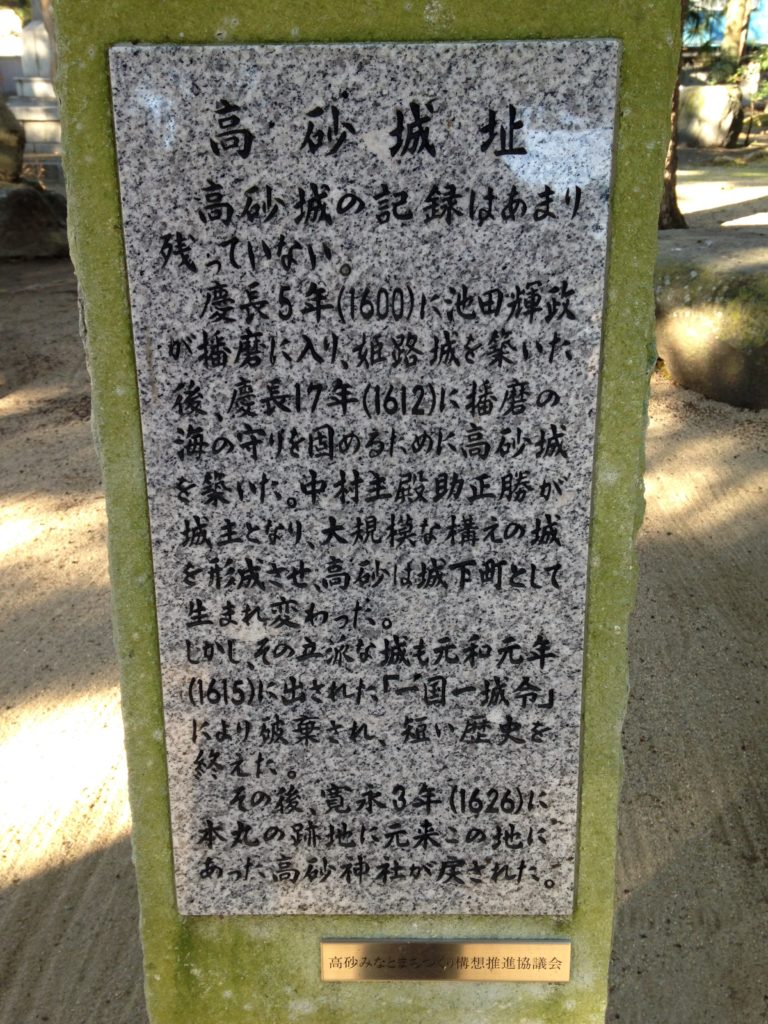 高砂城址
高砂城の記録はあまり
残っていない。
慶長5年(1600)に池田輝政
が播磨に入り、姫路城を築いた
後、慶長17年(1612)に播磨の
海の守りを固めるために高砂城
を築いた。中村主殿助正勝が
城主となり、大規模な構えの城
を形成させ、高砂は城下町として
生まれ変わった。
しかし、その立派な城も元和元年
(1615)に出された「一国一城令」
により破棄され、短い歴史を
終えた。
その後、寛永3年(1626)に
本丸の跡地に元来この地に
あった高砂神社が戻された。
高砂みなとまちづくり構想推進協議会